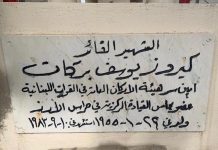 الشهيد القائد
كيروز يوسف بركات
امين سر هيئة الاركان العامة في القوات اللبنانية
عضو مجلس القيادة المركزية في حراس الأرز
ولد في ٢٩-١-١٩٥٥ استشهد في ١-٩-١٩٨٢